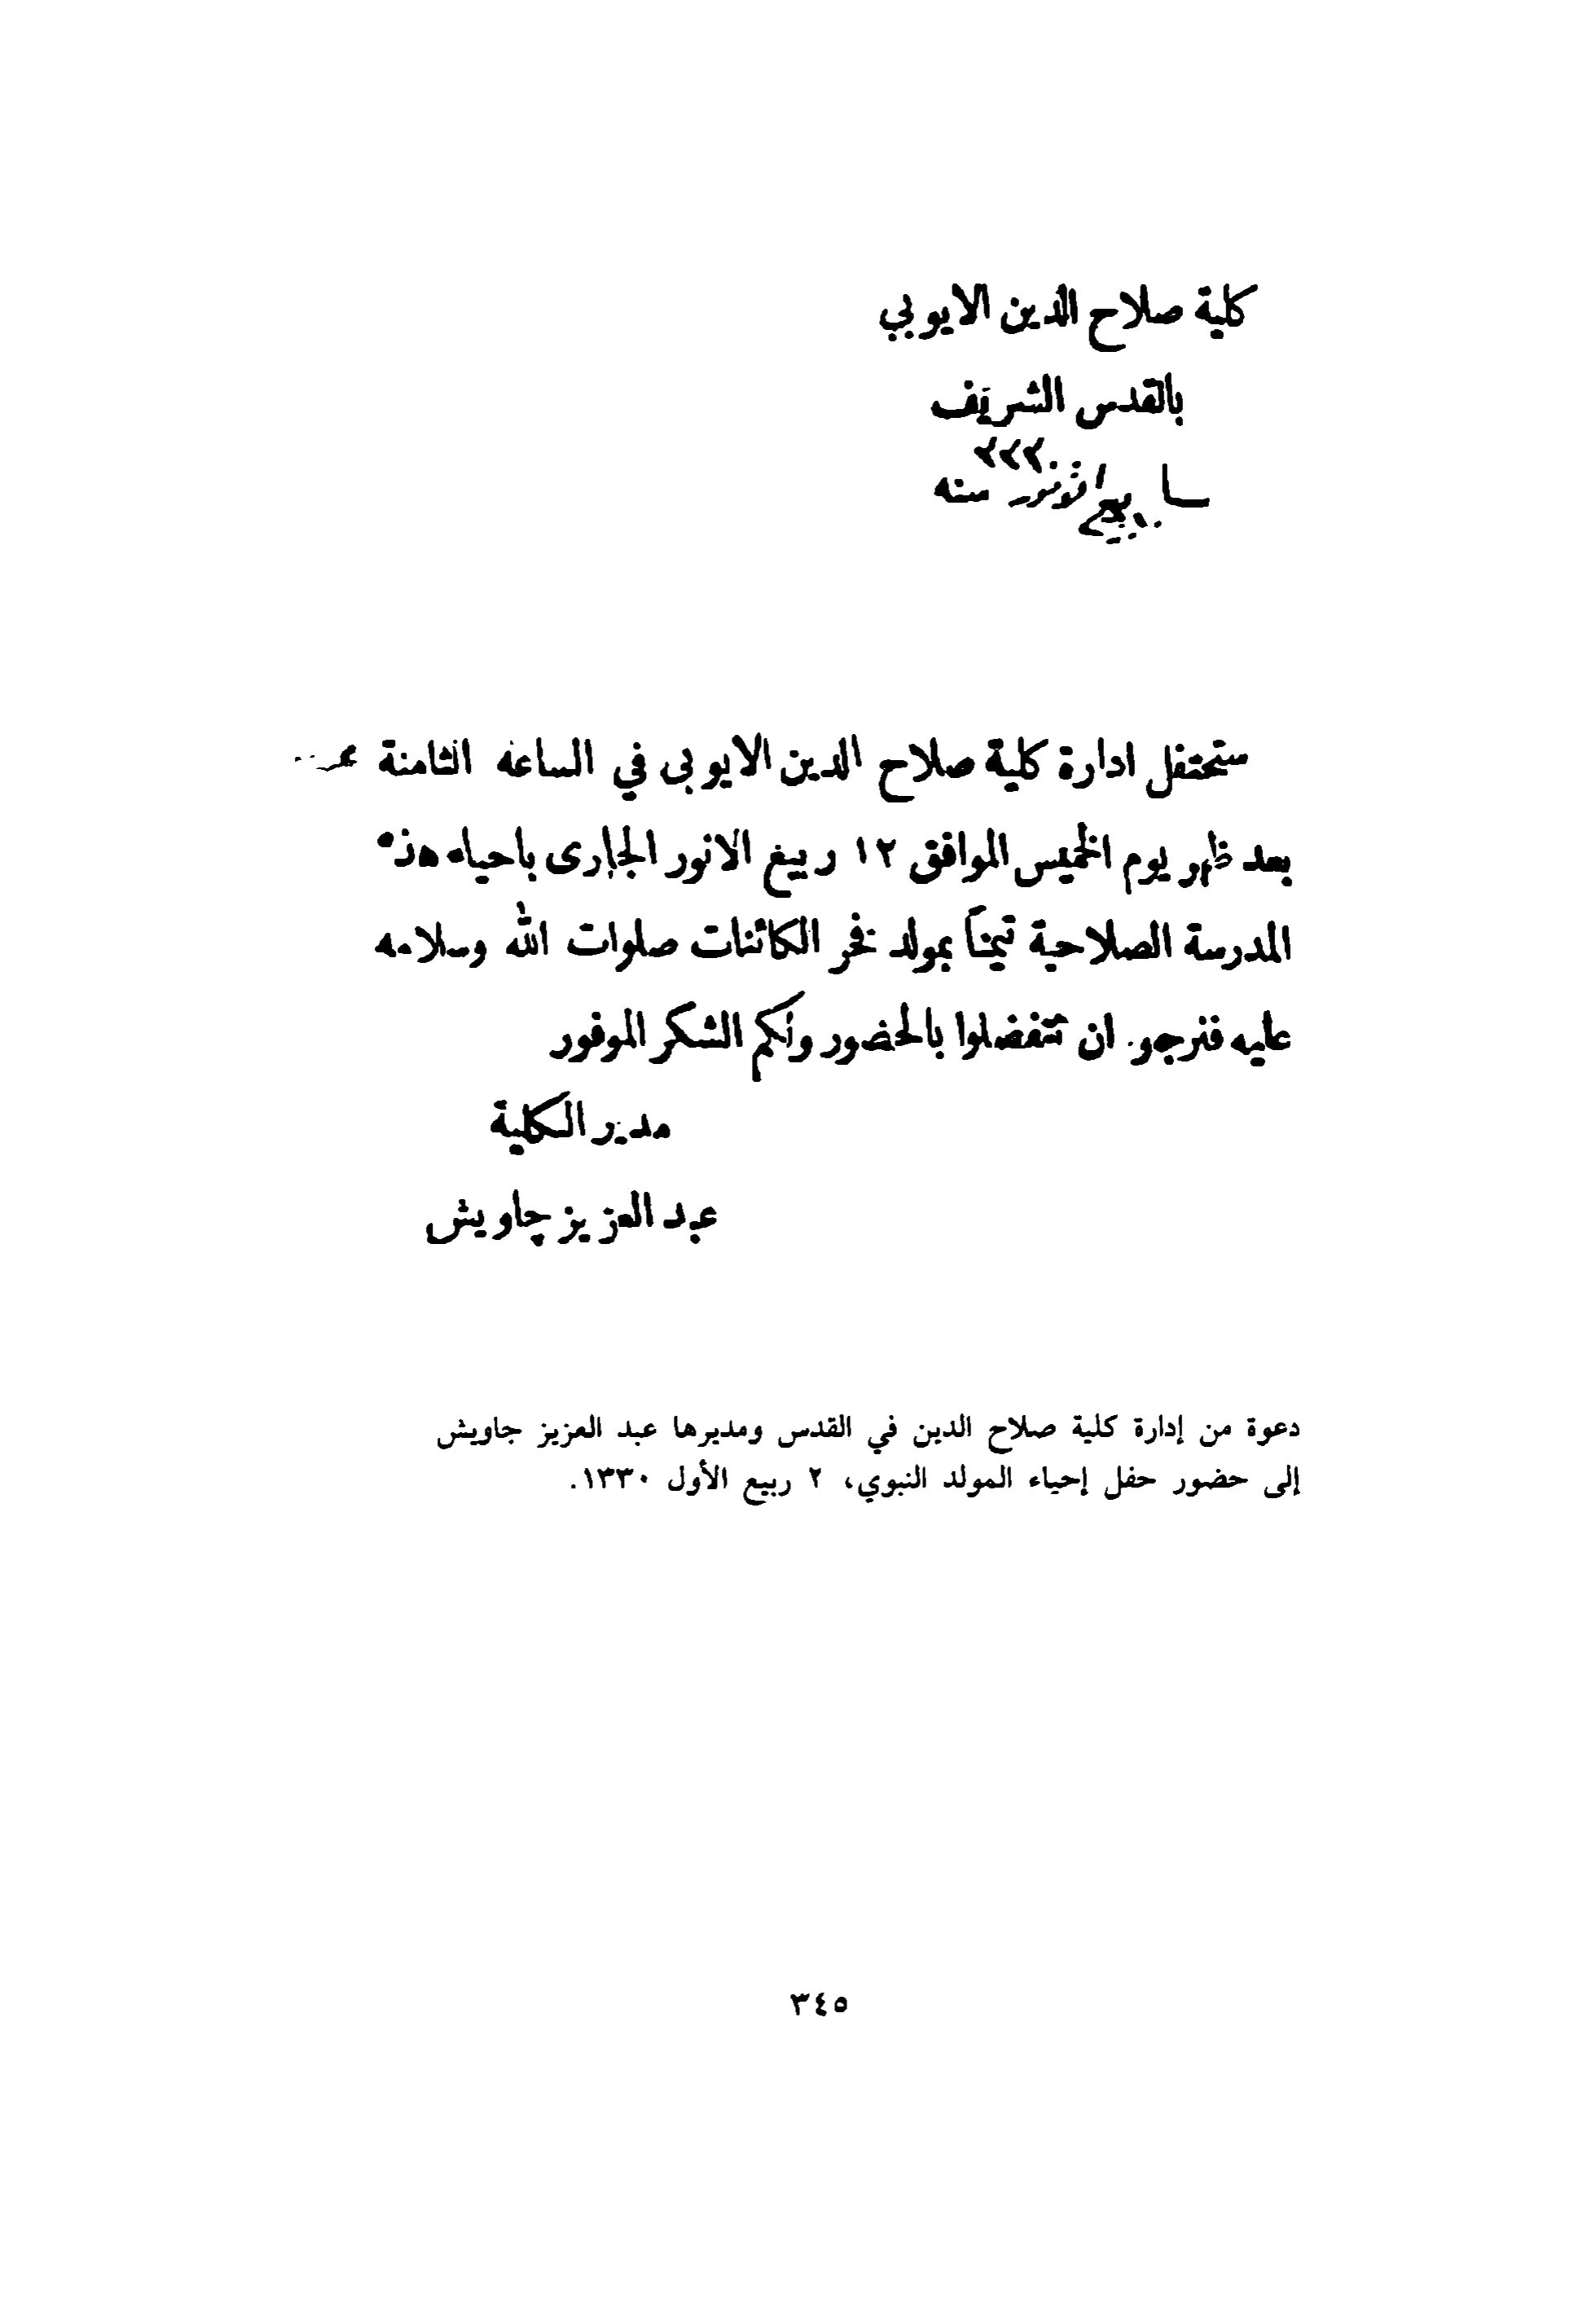 كلية صلاح الدين الايوبي
بالقدس الشريف
سنه
ستحتفل ادارة كلية صلاح الدين الايوبى في الساعه الثامنة
بعد ظهر يوم الخميس الموافق ١٢ ربيع الانور الجارى باحياء هذه
المدرسة الصلاحية تيمناً بمولد فخر الكائنات صلوات الله وسلامه
عليه فنرجو ان تتفضلوا بالحضور ولكم الشكر الموفور
مدير الكلية
عبد العزيز چاويش
دعوة من إدارة كلية صلاح الدين في القدس ومديرها عبد العزيز جاويش
إلى حضور حفل إحياء المولد النبوي، ٢ ربيع الأول ١٣٣٠.
٣٤٥